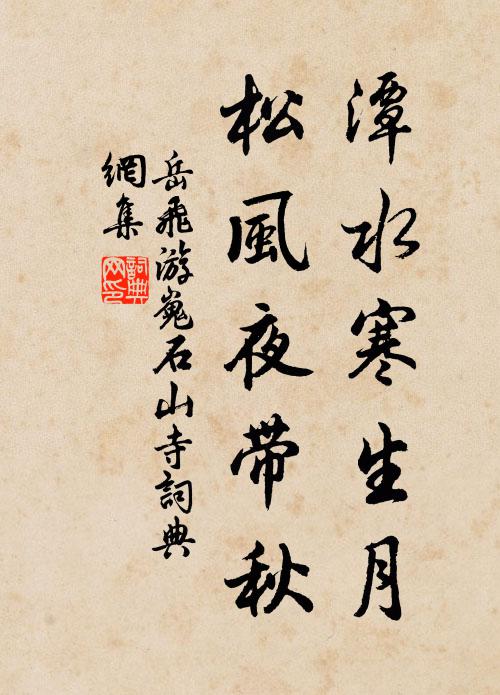 潭水寒生月
松風夜带秋
岳飛游嵬石山寺詞典
網集
詞典
网印